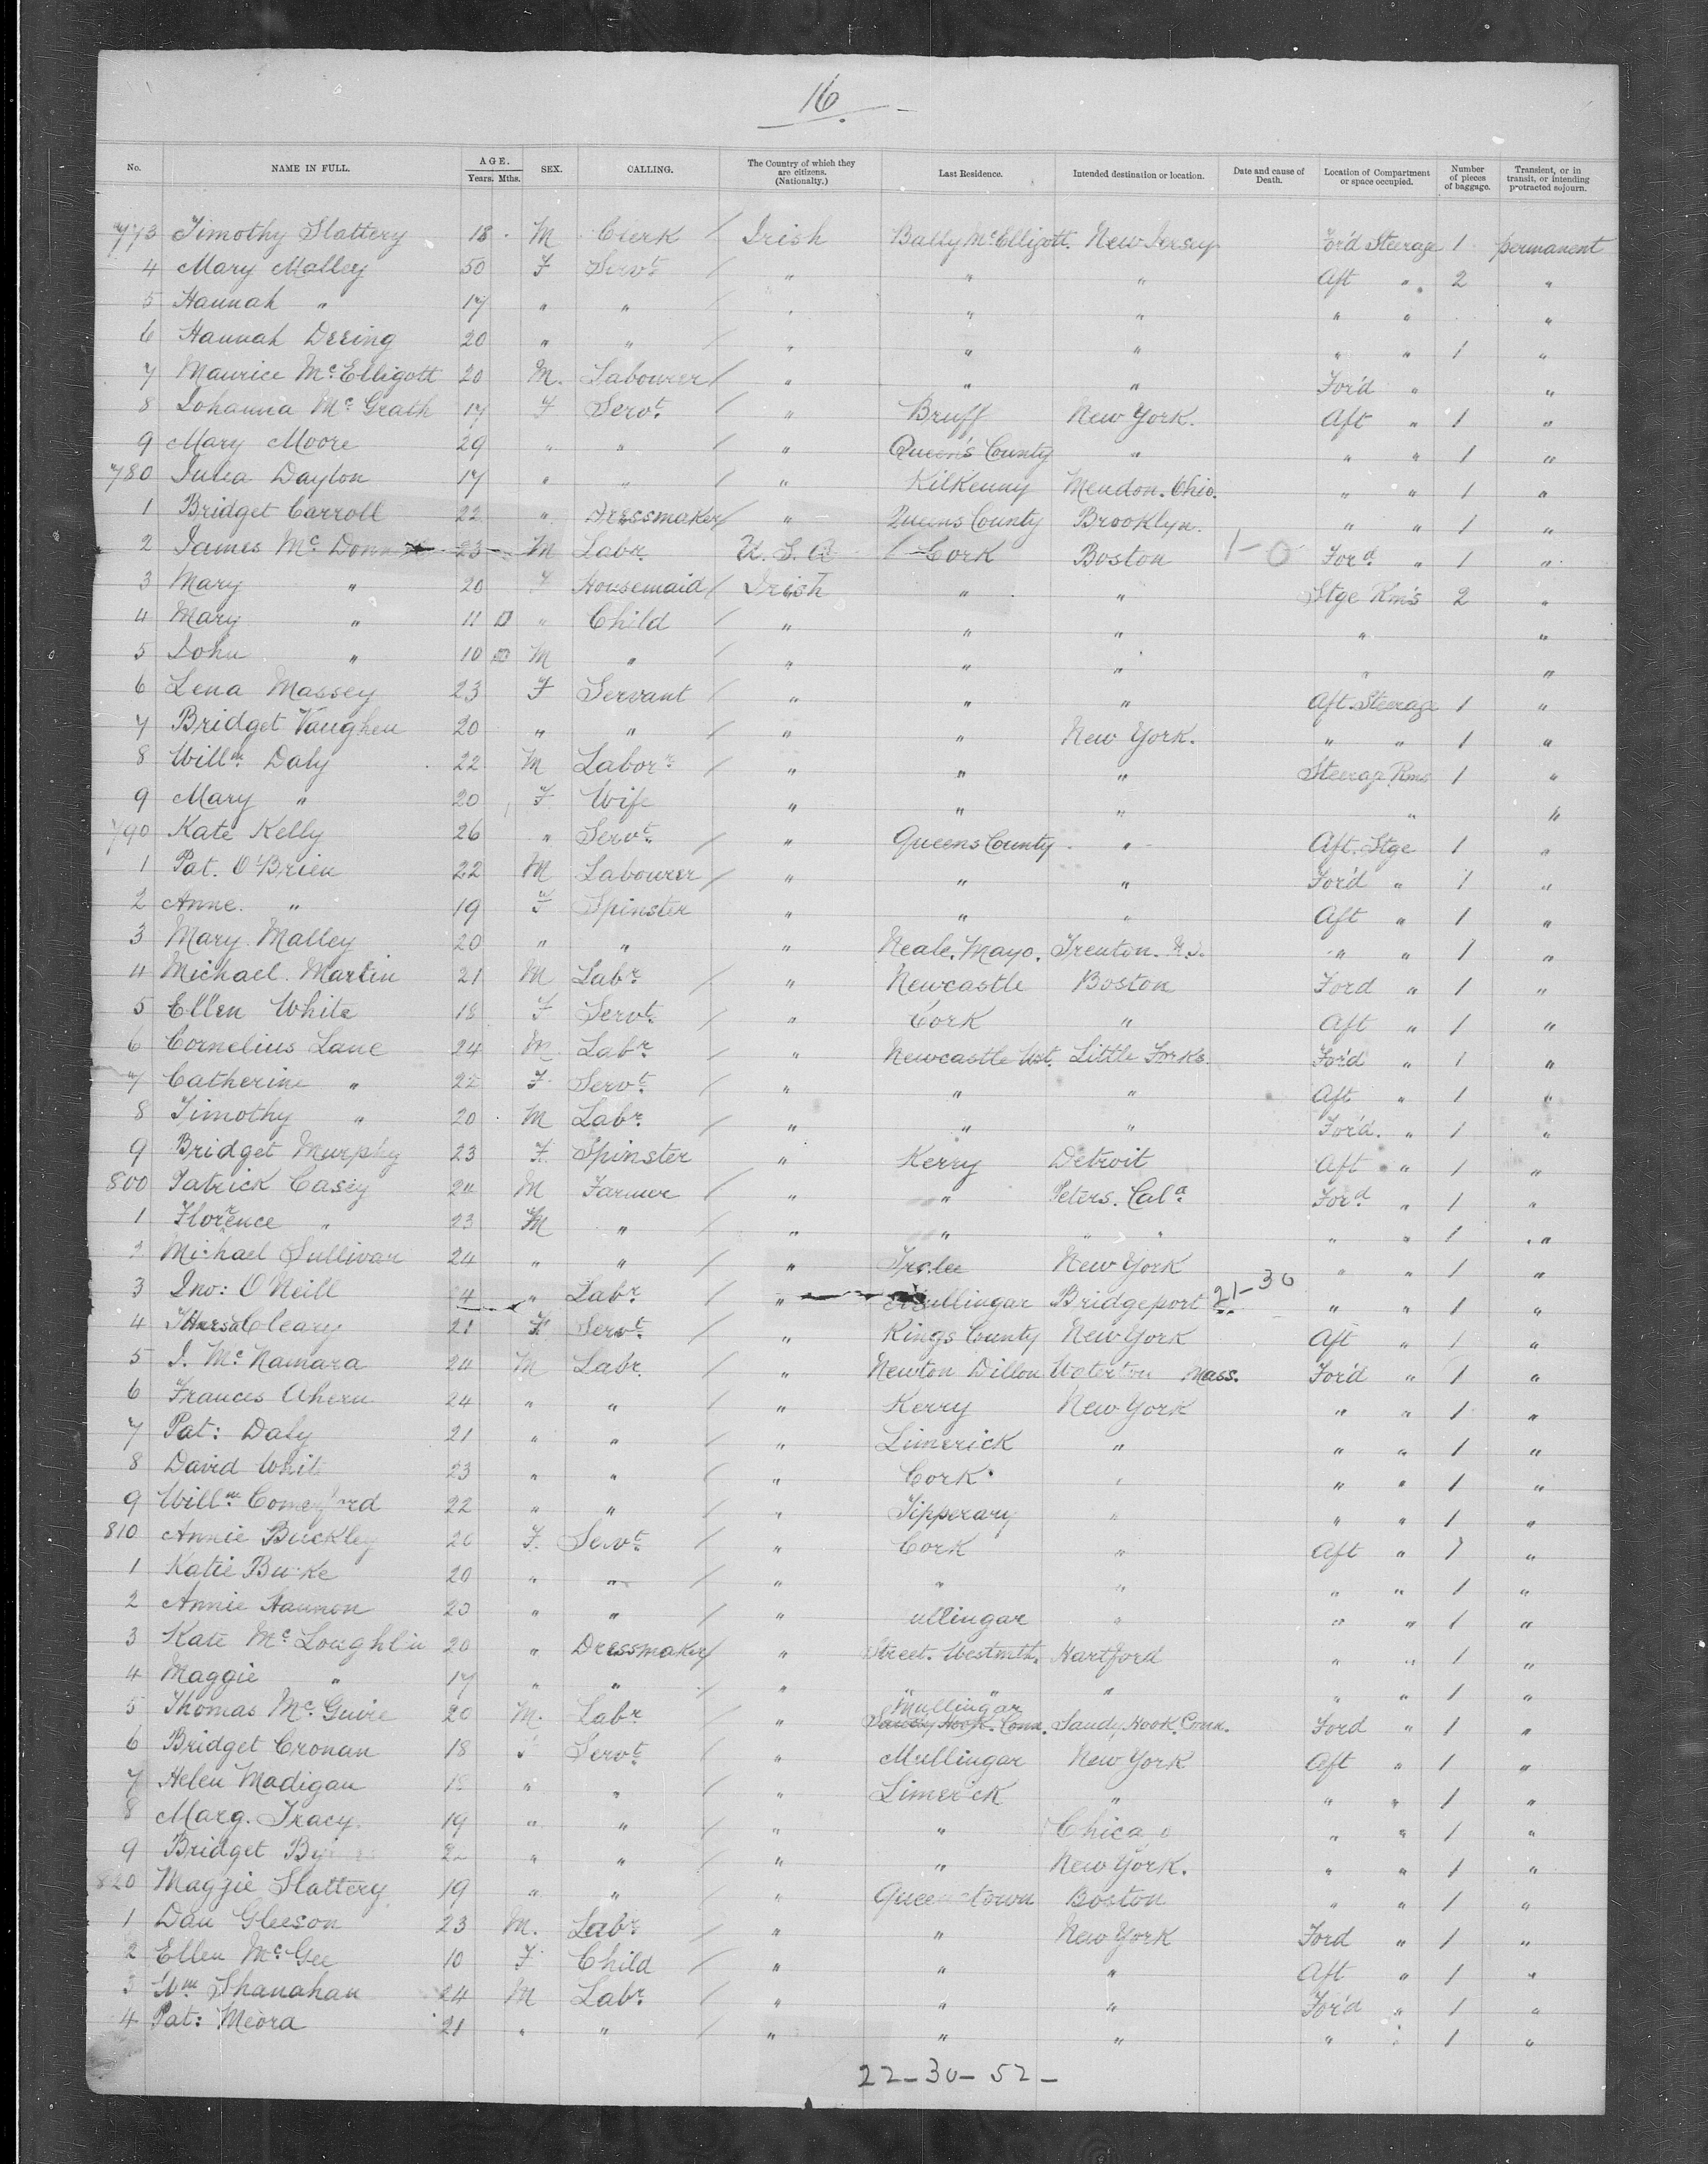 16
No. NAME IN FULL. AGE. Years. Mths. SEX. CALLING. The Country of which they are citizens. (Nationalty.) Last Residence. Intended destination or location. Date and cause of Death. Location of Compartment or space occupied. Number of pieces of baggage. Transient, or in transit, or intending protracted sojourn.
773 Timothy Slattery 18 M Clerk / Irish Bally McElligott. New Jersey For'd Steerage 1 permanent
4 Mary Malley 50 F Servt / " " " Aft " 2 "
5 Hannah " 17 " " " " " " " "
6 Hannah Deeing 20 " " / " " " " " 1 "
7 Maurice McElligott 20 M. Labourer / " " " For'd " "
8 Johanna McGrath 17 F Servt. / " Bruff New York. Aft " 1 "
9 Mary Moore 29 " " / " Queen's County " " " 1 "
780 Julia Dayton 17 " " / " Kilkenny Mendon. Ohio. " " 1 "
1 Bridget Carroll 22 " Dressmaker / " Queens County Brooklyn. " " 1 "
2 James Mc 23 M Labr U. S. A / Cork Boston 1-0 Ford " 1 "
3 Mary " 20 F Housemaid / Irish " " Stge Rm's 2 "
4 Mary " 11 " Child / " " " " "
5 John " 10 M " / " " " " "
6 Lena Massey 23 F Servant / " " " Aft. Steerage 1 "
7 Bridget Vaughen 20 " " / " " New York. " " 1 "
8 Willm Daly 22 M Labor / " " " Steerage Rms 1 "
9 Mary " 20 F Wife " " " " "
790 Kate Kelly 26 " Servt. / " Queens County " Aft. Stge 1 "
1 Pat. O'Brien 22 M Labourer / " " " For'd " 1 "
2 Anne. " 19 F Spinster " " " Aft " 1 "
3 Mary Malley 20 " " " Neale. Mayo. Trenton. N.J. " " 1 "
4 Michael Martin 21 M Labr / " Newcastle Boston Ford " 1 "
5 Ellen White 18 F Servt. / " Cork " Aft " 1 "
6 Cornelius Lane 24 M Labr / " Newcastle Wst. Little Forks. For'd " 1 "
7 Catherine " 22 F. Servt. / " " " Aft " 1 "
8 Timothy " 20 M Labr. / " " " For'd. " 1 "
9 Bridget Murphy 23 F. Spinster " Kerry Detroit Aft " 1 "
800 Patrick Casey 24 M Farmer / " " Peters. Cala. Ford " 1 "
1 Florence " 23 M " / " " " " " " 1 "
2 Michael Sullivan 24 " " / " Tralee New York " " 1 "
3 Jno: O'Neill 14 " Labr / " Mullingar Bridgeport 21-30 " " 1 "
4 Cleary 21 F Servt. / " Kings County New York Aft " 1 "
5 J. McNamara 24 M Labr. / " Newton Dillon Mass. For'd " 1 "
6 Frances Ahern 24 " " / " Kerry New York " " 1 "
7 Pat: Daly 21 " " / " Limerick " " " 1 "
8 David 23 " " / " Cork " " " 1 "
9 Willm 22 " " / " Tipperary " " " 1 "
810 Annie Buckley 20 F. Servt. " Cork " Aft " 1 "
1 Katie Burke 20 " " / " " " " " 1 "
2 Annie Hannon 20 " " / " ullingar " " " 1 "
3 Kate McLoughlin 20 " Dressmaker / " Street. Westmth. Hartford " " 1 "
4 Maggie " 17 " " / " " " " " " 1 "
5 Thomas McGuire 20 M. Labr " Mullingar Sandy Hook. Conn. Sandy. Hook. Conn. Ford " 1 "
6 Bridget Cronan 18 F Servt. / " Mullingar New York Aft " 1 "
7 Helen Madigan 18 " " / " Limerick " " " 1 "
8 Marg. Tracy. 19 " " / " " Chica o " " 1 "
9 Bridget " " / " " New York. " " 1 "
820 Maggie Slattery 19 " " / " Queenstown Boston " " 1 "
1 Dan Gleeson 23 M. Labr / " " New York Ford " 1 "
2 Ellen McGee 10 F Child / " " " Aft " 1 "
3 Wm Shanahan 24 M Labr. / " " " For'd " 1 "
4 Pat: Meara 21 " " / " " " " " 1 "
22-30-52-